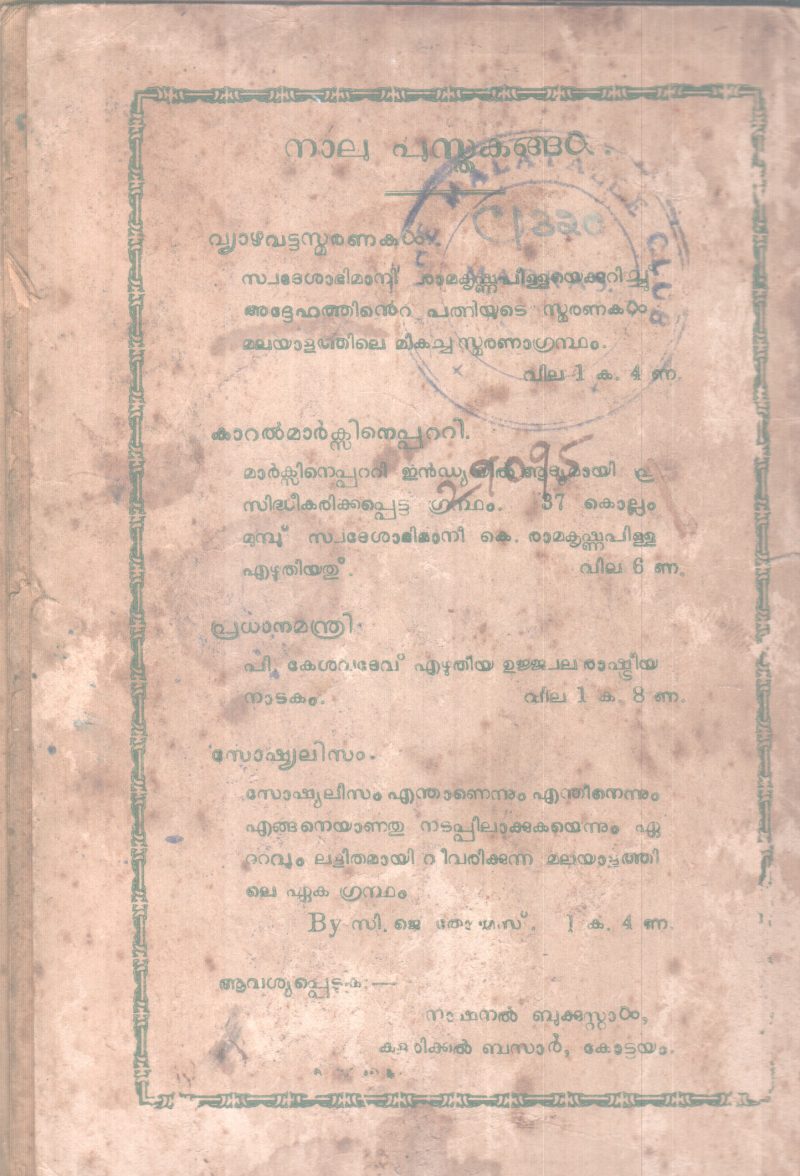 നാലു പുസ്തകങ്ങൾ.
വ്യാഴവട്ടസ്മരണകൾ.
സ്വദേശാഭിമാനി രാമകൃഷ്ണപിള്ളയെക്കുറിച്ചു
അദ്ദേഹത്തിൻെറ പത്നിയുടെ സ്മരണകൾ,
മലയാളത്തിലെ മികച്ച സ്മരണാഗ്രന്ഥം.
വില 1 ക. 4 ണ.
കാറൽമാർക്സിനെപ്പററി.
മാർക്സിനെപ്പററി ഇൻഡ്യയിൽ ആദ്യമായി പ്ര
സിദ്ധീകരിക്കപ്പെട്ട ഗ്രന്ഥം. 37 കൊല്ലം
മുമ്പു് സ്വദേശാഭിമാനി കെ. രാമകൃഷ്ണപിള്ള
എഴുതിയതു്. വില 6 ണ.
പ്രധാനമന്ത്രി.
പി. കേശവദേവ് എഴുതിയ ഉജ്ജ്വല രാഷ്ട്രീയ
നാടകം. വില 1 ക. 8 ണ.
സോഷ്യലിസം.
സോഷ്യലിസം എന്താണെന്നും എന്തിനെന്നും
എങ്ങനെയാണതു നടപ്പിലാക്കുകയെന്നും ഏ
ററവും ലളിതമായി വിവരിക്കുന്ന മലയാളത്തി
ലെ ഏക ഗ്രന്ഥം
By സി. ജെ തോമസ്. 1 ക. 4 ണ.
ആവശ്യപ്പെടുക:—
നാഷനൽ ബുക്കുസ്റ്റാൾ,
ബസാർ, കോട്ടയം.
MALAYALEE CLUB
C1320
29095